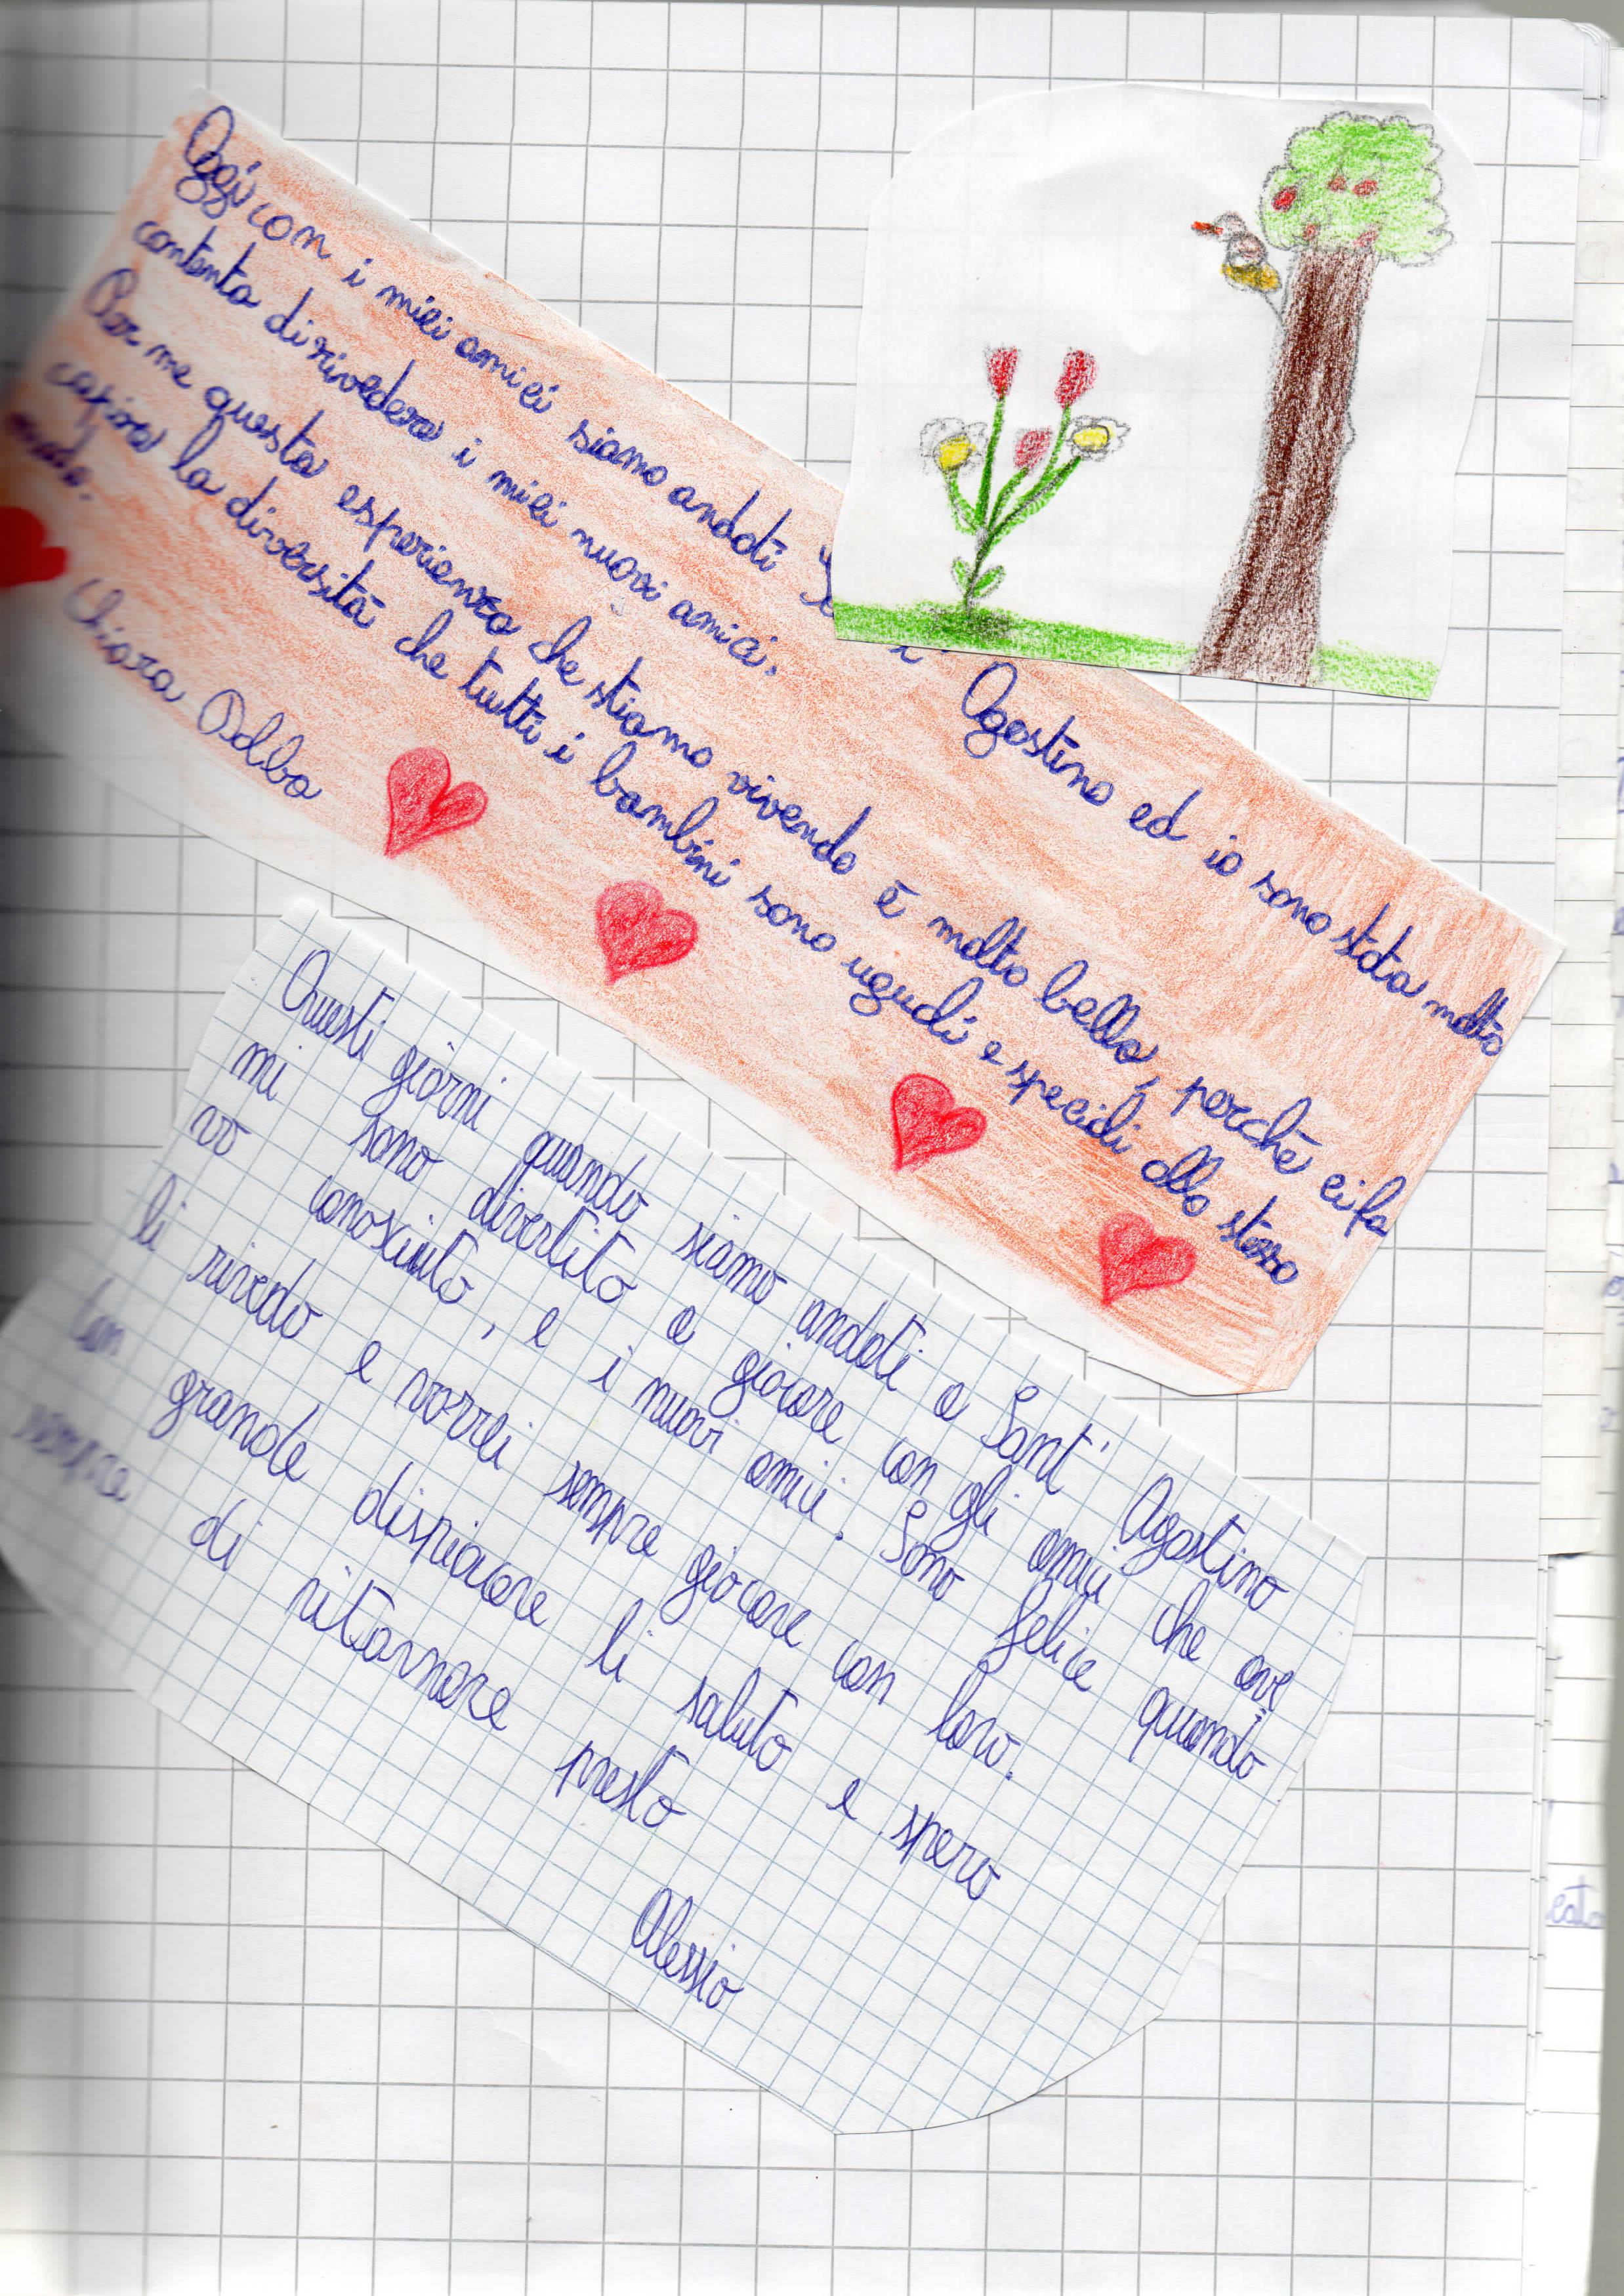 Oggi con i miei amici siamo andati Agostino ed io sono stata molto
contenta di rivedere i miei nuovi amici.
Per me questa esperienza che stiamo vivendo è molto bella, perchè ci fa
capire la diversità che tutti i bambini sono uguali e speciali allo stesso
modo.
Chiara Adda
Questi giorni quando siamo andati a Sant' Agostino
mi sono divertito a giocare con gli amici che ave
vo conosciuto, e i nuovi amici. Sono felice quando
li rivedo e vorrei sempre giocare con loro.
Con grande dispiacere li saluto e spero
sempre di ritornare presto
Alessio